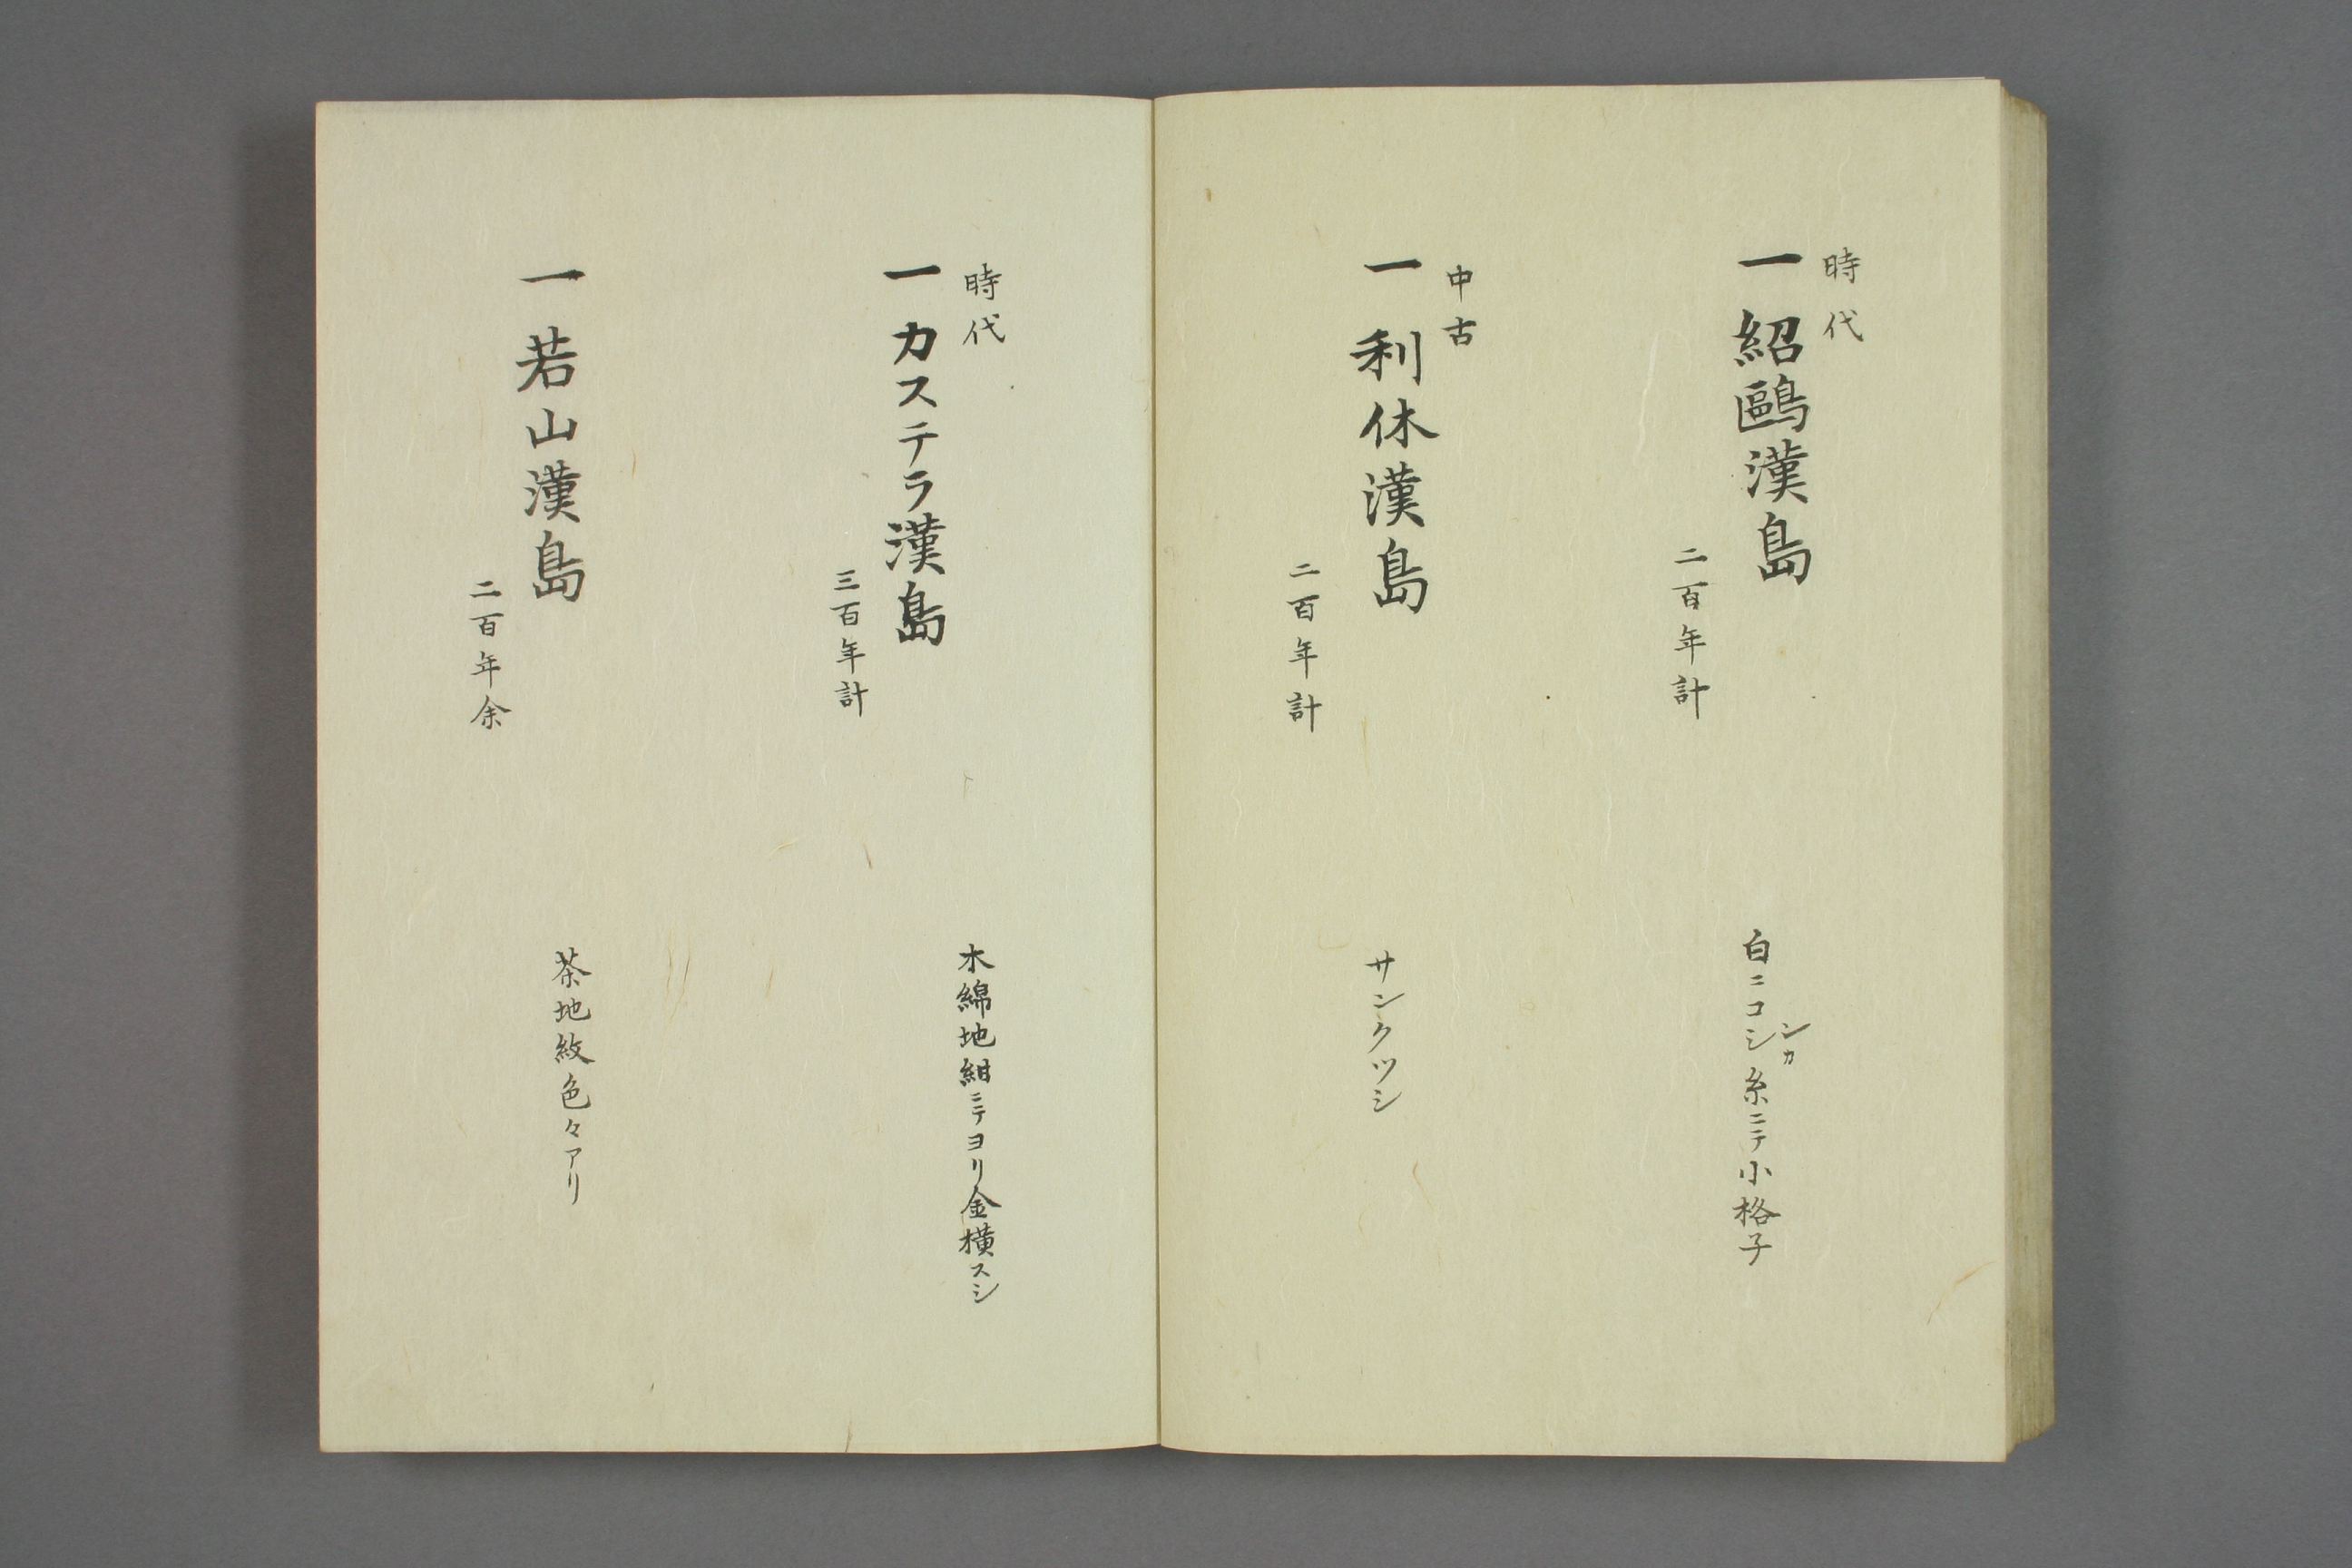 時代
一紹鷗漢島
二百年計
白ニコシ糸ニテ小格子
シカ
中古
一利休漢島
二百年計
サンクツシ
時代
一カステラ漢島
三百年計
木綿地紺ニテヨリ金横スシ
一若山漢島
二百年余
茶地紋色々アリ